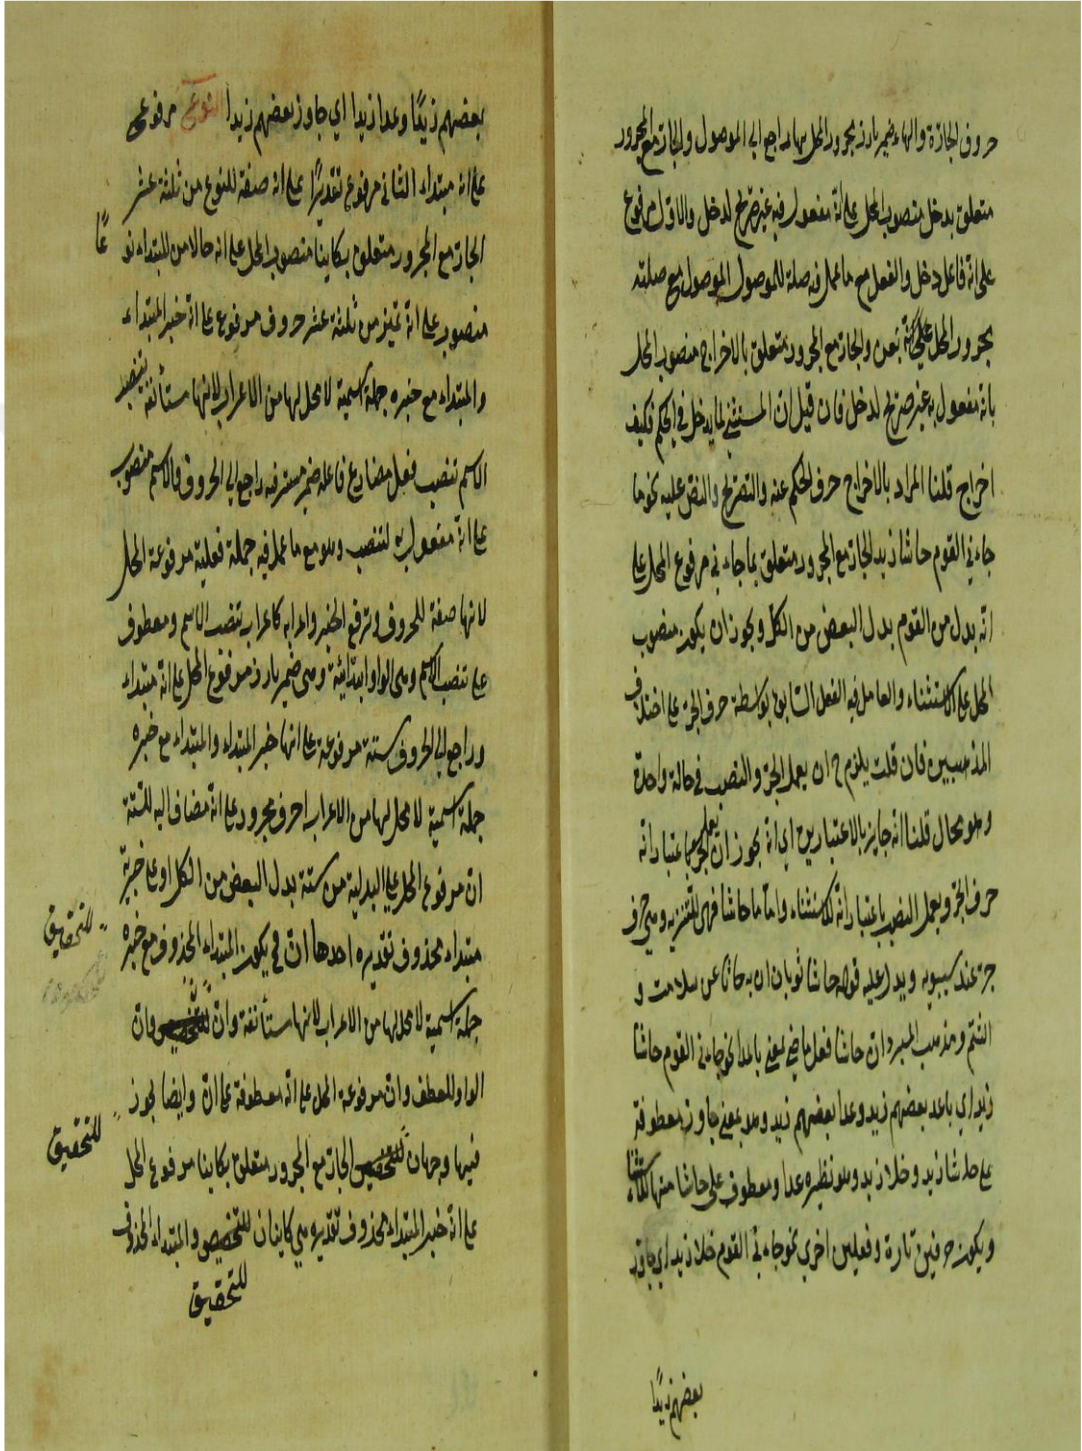 حروف الجارّة والهاء ضمير بارز مجرور المحل بها راجع الي الموصول والجار مع المجرور
متعلق بدخل منصوب المحل علي انّه مفعول فيه غير صريح لدخل والاوّل مرفوع
علي انّه فاعل دخل والفعل مع ما عمل فيه صلة للموصول الموصول مع صلته
مجرور المحل علي انّه بعن والجار مع المجرور متعلق بالاخراج منصوب المحل
بانّه مفعول به غير صريح لدخل فان قيل انّ المستثني لما يدخل في الحكم فكيف
اخراج قلنا المراد بالاخراج حرف الحكم عنه والتصريح والنص عليه نحو ما
جاءني القوم حاشا زيد الجار مع المجرور متعلق بما جاءني مرفوع المحل علي
انّه بدل من القوم بدل البعض من الكل ويجوز ان يكون منصوب
المحل علي الاستثناء والعامل فيه الفعل السّابق بواسطة حرف الجرّ علي اختلاف
المذهبين فان قلت يلزم ح ان يعمل الجرّ والنصب في حالة واحدة
وهو محال قلنا انّه جايز بالاعتبارين اي انّه يجوز ان يعمل الجر باعتبار انّه
حرف الجرّ ويعمل النصب باعتبار انّه للاستثناء وامّا ما حاشا فهي للتنزيه وهي حرف
جرّ عند سيبويه ويدل عليه قوله حاشا ثوبان ان به عن سلامت و
الشتم ومذهب المبرد انّ حاشا فعل ماضي بمعني باعدا نحو جاءني القوم حاشا
زيدا اي باعد بعضهم زيد وعدا بعضهم زيد وهو بمعني جاوز معطوفة
علي حاشا زيد وخلا زيد وهو نظيره عدا ومعطوف علي حاشا منها
ويكون حرفين تارة وفعلين اخري نحو جاءني القوم خلا زيدا اي جاوز
بعضهم زيدًا
بعضهم زيدًا وعدا زيدا اي جاوز بعضهم زيدا النوع مرفوع
علي انّه مبتداء الثاني مرفوع تقديرًا علي انّه صفة للنوع من ثلثة عشر
الجار مع المجرور متعلق بكاينا منصوب المحل علي انّه حالا من المبتداء نو عًا
منصوب علي انّه تميز من ثلثة عشر حروف مرفوع علي انّه خبر المبتداء
والمبتداء مع خبره جملة اسمية لا محل لها من الاعراب لانها مستأنفة تنصب
الاسم تنصب فعل مضارع فاعله ضمير مستتر فيه راجع الي الحروف والاسم منصوب
علي انّه مفعول به لتنصب وهو مع ما عمل فيه جملة فعلية مرفوعة المحل
لانها صفة للحروف وترفع الخبر واعرابه كاعراب تنصب الاسم ومعطوف
علي تنصب الاسم وهي الواو ابتدائية وهي ضمير بارز مرفوع المحل علي انّه مبتداء
وراجع الي الحروف ستة مرفوعة علي انها خبر المبتداء والمبتداء مع خبره
جملة اسمية لا محل لها من الاعراب احرف مجرور علي انّه مضاف اليه للستّة
انّ مرفوع المحل علي البدلية من ستة بدل البعض من الكل او علي خبرية
مبتداء محذوف تقديره احدها انّ في يكون المبتداء المحذوف مع خبره
جملة اسمية لا محل لها من الاعراب لانها مستأنفة وانّ للتخصيص وانّ
الواو للعطف وانّ مرفوعة المحل علي انّه معطوفة علي انّ وايضا يجوز
فيها وجهان للتخصيص الجار مع المجرور متعلق بكاينا مرفوع المحل
علي انّه خبر المبتداء محذوف تقديره هي كاينان للتخصيص والمبتداء المحذوف
للتحقيق
للتحقيق
للتحقيق